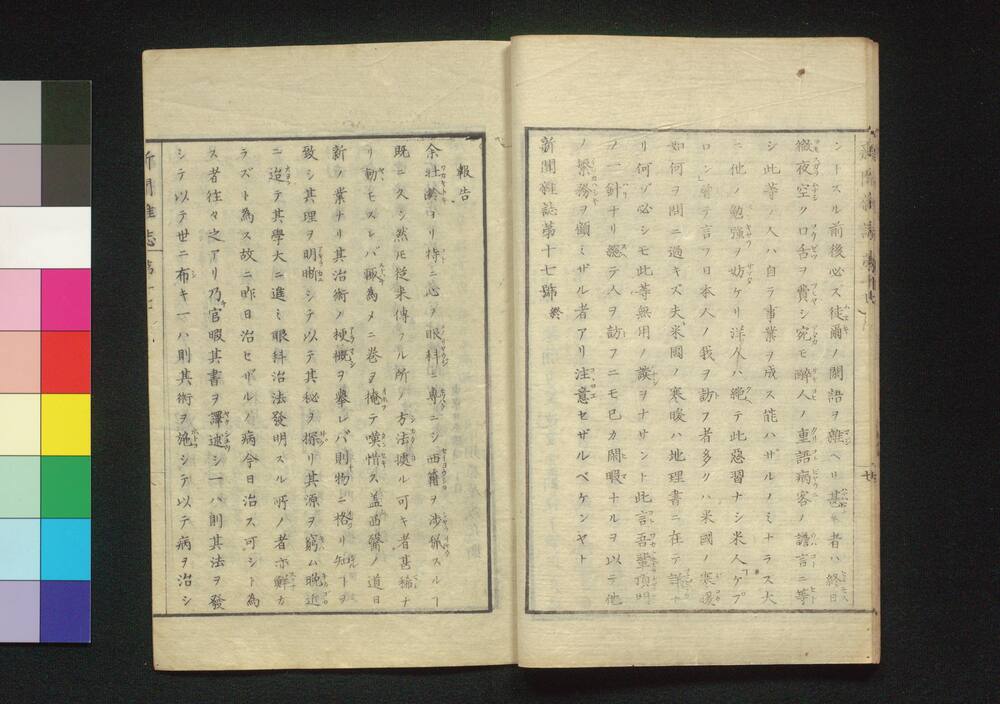 ントスル前後必ス徒爾ノ閑語ヲ雜ヘリ甚キ者ハ終日
徹夜空ク口舌ヲ費シ宛モ醉人ノ重語病客ノ譫言ニ等
シ此等ノ人ハ自ラ事業ヲ成ス能ハザルノミナラス大
ニ他ノ勉強ヲ妨ケリ洋人ハ絶テ此惡習ナシ米人「ケプ
ロン」曽テ言フ日本人ノ我ヲ訪フ者多クハ米國ノ寒暖
如何ヲ問ニ過キズ夫米國ノ寒暖ハ地理書ニ在テ詳ナ
リ何ゾ必シモ此等無用ノ談ヲナサント此言吾輩頂門
ノ一針ナリ総テ人ヲ訪フニモ己カ閑暇ナルヲ以テ他
ノ繁務ヲ顧ミザル者アリ注意セザルベケンヤト
新聞雜誌第十七號 終
廿
報告
余壮齢ヨリ特ニ心ヲ眼科ニ專ニシ西籍ヲ渉猟スルヿ
既ニ久シ然𪜈従来傳フル所ノ方法據ル可キ者甚稀ナ
リ動モスレバ輙為メニ巻ヲ掩テ嘆惜ス盖西醫ノ道日
新ノ業ナリ其治術ノ梗概ヲ擧レバ則物ニ格リ知ヲ
致シ其理ヲ明晰シテ以テ其秘ヲ探リ其源ヲ窮ム晩近
ニ迨テ其學大ニ進ミ眼科治法發明スル所ノ者亦鮮カ
ラズト為ス故ニ昨日治セザルノ病今日治ス可シト為
ス者往々之アリ乃官暇其書ヲ譯述シ一ハ則其法ヲ發
シテ以テ世ニ布キ一ハ則其術ヲ施シテ以テ病ヲ治シ
新聞雜志 第十七